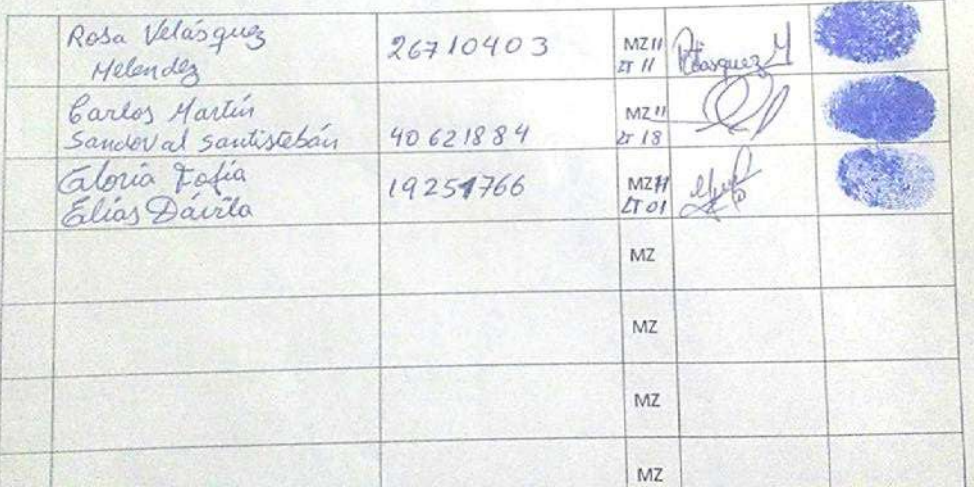 Rosa Velásquez
Melendez
26710403
MZ 11
LT 11
Velasquez M
Carlos Martín
Sandoval Santisteban
40621884
MZ 11
LT 18
Gloria Sofia
Elías Dávila
19251766
MZ 11
LT 01
MZ
MZ
MZ
MZ